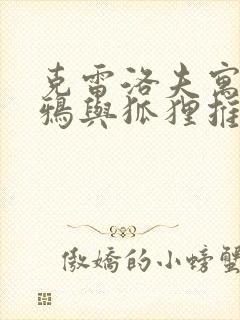 克雷洛夫寓
鴉與狐狸推
傲嬌的小螃蟹